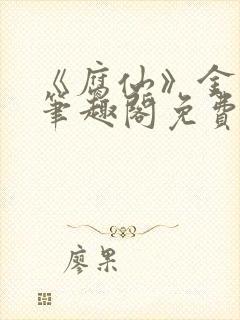 《腐仙》全
笔趣阁免費
廖果